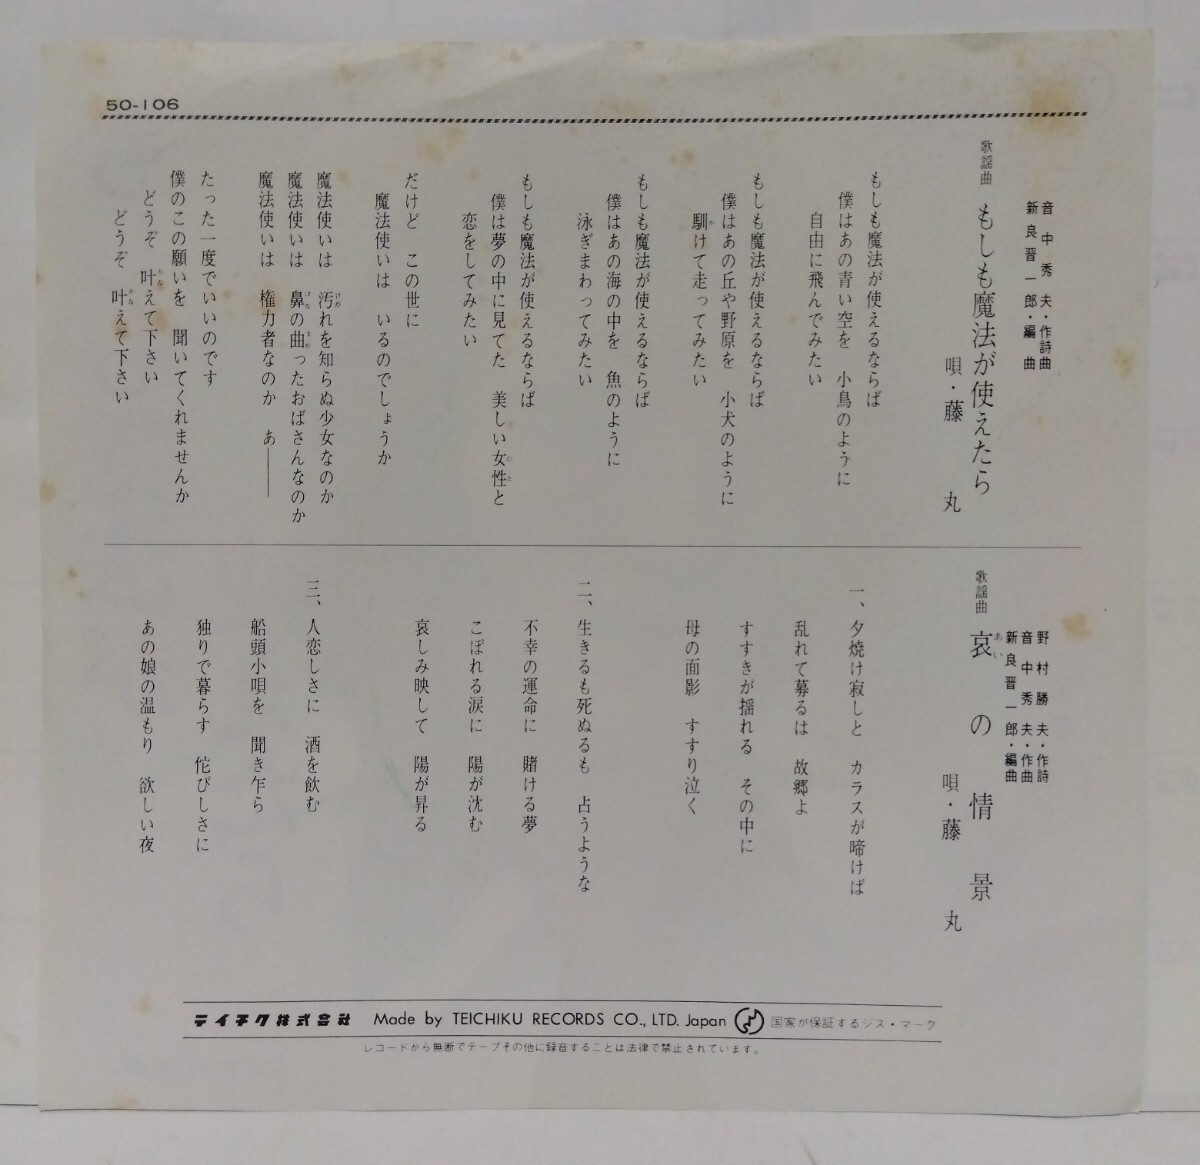 50-106
音中秀夫・作詩曲
新良晋一郎・編曲
歌謡曲 もしも魔法が使えたら
唄・藤 丸
もしも魔法が使えるならば
僕はあの青い空を 小鳥のように
自由に飛んでみたい
もしも魔法が使えるならば
僕はあの丘や野原を 小犬のように
馴けて走ってみたい
もしも魔法が使えるならば
僕はあの海の中を 魚のように
泳ぎまわってみたい
もしも魔法が使えるならば
僕は夢の中に見てた 美しい女性と
恋をしてみたい
だけど この世に
魔法使いは いるのでしょうか
魔法使いは 汚れを知らぬ少女なのか
魔法使いは 鼻の曲ったおばさんなのか
魔法使いは 権力者なのか あ——
たった一度でいいのです
僕のこの願いを 聞いてくれませんか
どうぞ 叶えて下さい
どうぞ 叶えて下さい
野村勝夫・作詩
音中秀夫・作曲
新良晋一郎・編曲
歌謡曲 哀の情景
唄・藤 丸
一、夕焼け寂しと カラスが啼けば
乱れて募るは 故郷よ
すすきが揺れる その中に
母の面影 すすり泣く
二、生きるも死ぬるも 占うような
不幸の運命に 賭ける夢
こぼれる涙に 陽が沈む
哀しみ映して 陽が昇る
三、人恋しさに 酒を飲む
船頭小唄を 聞き乍ら
独りで暮らす 侘びしさに
あの娘の温もり 欲しい夜
テイチク株式会社 Made by TEICHIKU RECORDS CO., LTD. Japan 国家が保証するジス・マーク
レコードから無断でテープその他に録音することは法律で禁止されています。